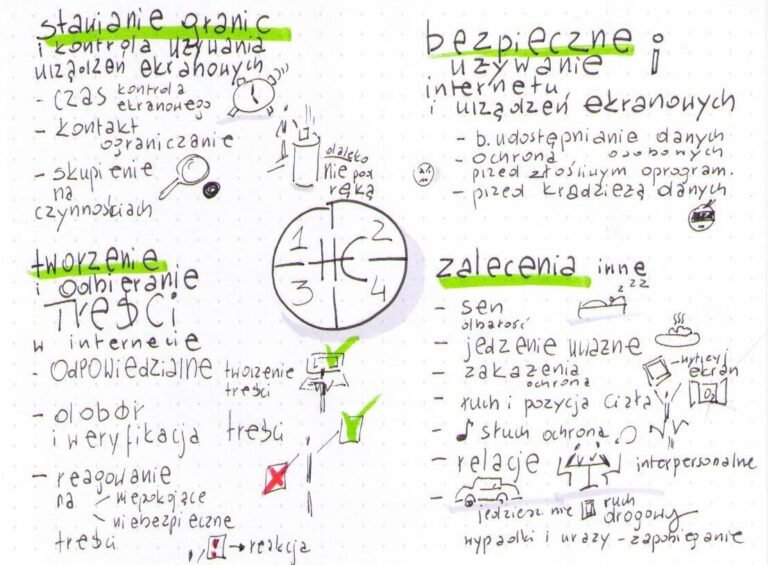 stawianie granic
i kontrola używania
urządzeń ekranowych
- czas kontrola
ekranowego
- kontakt
ograniczanie
- skupienie
na
czynnościach
daleko
nie pod
ręką
bezpieczne i
używanie
internetu
i urządzeń ekranowych
- b. udostępnianie danych
osobowych
- ochrona
przed złośliwym oprogram.
- przed kradzieżą danych
1 2
3 4
HC
tworzenie
i odbieranie
TREŚCI
w internecie
- odpowiedzialne tworzenie
treści
- dobór
i weryfikacja treści
- reagowanie
na niepokojące
niebezpieczne
treści
! → reakcja
zalecenia inne
- sen zzz
dbałość
- jedzenie uważne
- zakażenia
ochrona
wytrzyj
ekran
- ruch i pozycja ciała
O2
- słuch ochrona
- relacje interpersonalne
-
jedziesz nie ruch
drogowy
wypadki i urazy - zapobieganie